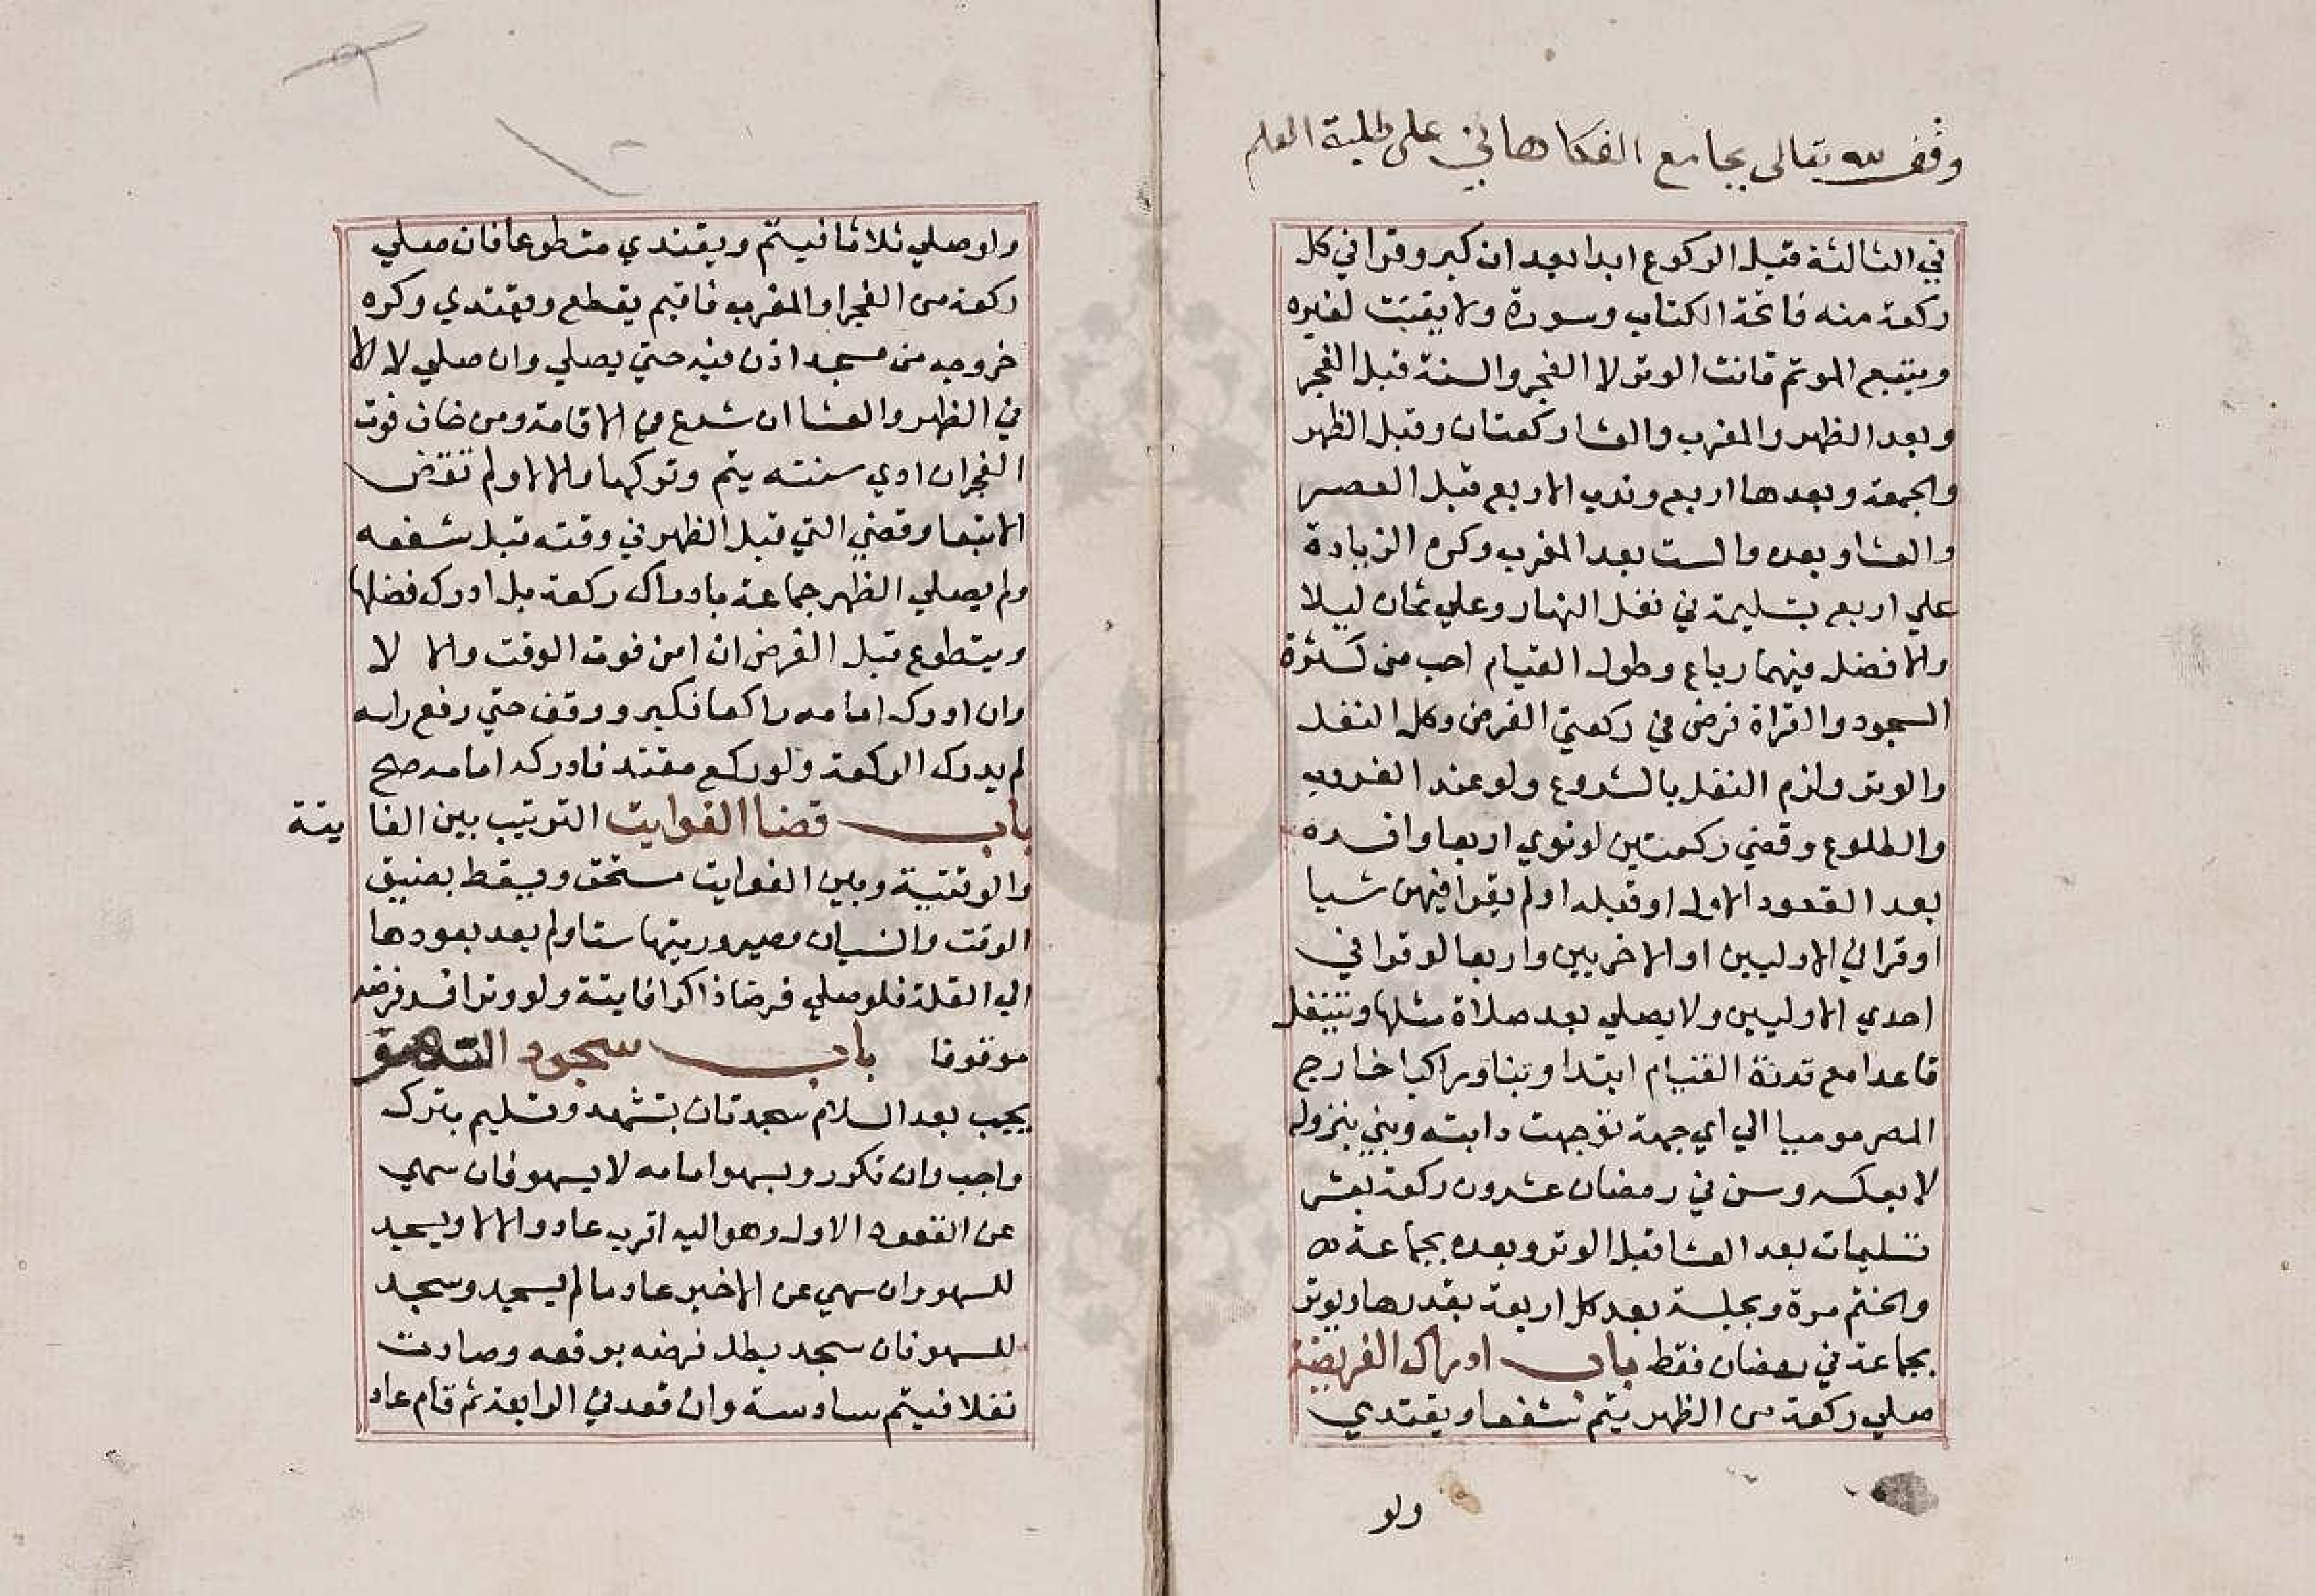 وقف لله تعالى بجامع الفكاهاني على طلبة العلم
في الثالثة قبل الركوع ابدا بعد ان كبر وقرا في كل
ركعة منه فاتحة الكتاب وسورة ولا يقنت لغيره
ويتبع الموتم قانت الوتر لا الفجر والسنة قبل الفجر
وبعد الظهر والمغرب والعشا ركعتان وقبل الظهر
والجمعة وبعدها اربع وندب الاربع قبل العصر
والعشا وبعده والست بعد المغرب وكره الزيادة
علي اربع بتسليمة في نفل النهار وعلي ثمان ليلا
والافضل فيهما رباع وطول القيام احب من كثرة
السجود والقراة فرض في ركعتي الفرض وكل النفل
والوتر ولزم النفل بالشروع ولو عند الغروب
والطلوع وقضي ركعتين لو نوي اربعا وافسده
بعد القعود الاول او قبله او لم يقرا فيهن شيا
او قرا في الاوليين او الاخريين واربعا لو قرا في
احدي الاوليين ولا يصلي بعد صلاة مثلها ويتنفل
قاعدا مع قدرة القيام ابتدا وبنا وراكبا خارج
المصر موميا الي اي جهة توجهت دابته وبني بنزوله
لا بعكسه وسن في رمضان عشرون ركعة بعشر
تسليمات بعد العشا قبل الوتر وبعده بجماعة
والختم مرة وبجلسة بعد كل اربعة بقدرها ويوتر
بجماعة في رمضان فقط باب ادراك الفريضة
صلي ركعة من الظهر يتم شفعا ويقتدي
ولو
ولو صلي ثلاثا فيتم ويقتدي متطوعا فان صلي
ركعة من الفجر او المغرب فاقيم يقطع ويقتدي وكره
خروجه من مسجد اذن فيه حتي يصلي وان صلي لا الا
في الظهر والعشا ان شرع في الاقامة ومن خاف فوت
الفجر ان ادي سنته يتم وتركها والا لا ولم تقض
الا تبعا وقضي التي قبل الظهر في وقته قبل شفعه
ولم يصلي الظهر جماعة بادراك ركعة بل ادرك فضلها
ويتطوع قبل الفرض ان امن فوت الوقت والا لا
وان ادرك امامه راكعا فكبر ووقف حتي رفع راسه
لم يدرك الركعة ولو ركع مقتد فادركه امامه صح
باب قضا الفوايت الترتيب بين الفا يتة
والوقتية وبين الفوايت مستحق ويسقط بضيق
الوقت والنسيان وصيرورتها ستا ولم يعد بعودها
الي القلة فلو صلي فرضا ذاكرا فايتة ولو وترا فسد فرضه
موقوفا باب سجود السهو
يجب بعد السلام سجدتان بتشهد وتسليم بترك
واجب وان تكرر وبسهو امامه لا بسهوه فان سهي
عن القعود الاول وهو اليه اقرب عاد والا لا ويسجد
للسهو وان سهي عن الاخير عاد ما لم يسجد وسجد
للسهو فان سجد بطل فرضه برفعه وصارت
نفلا فيتم سادسة وان قعد في الرابعة ثم قام عاد